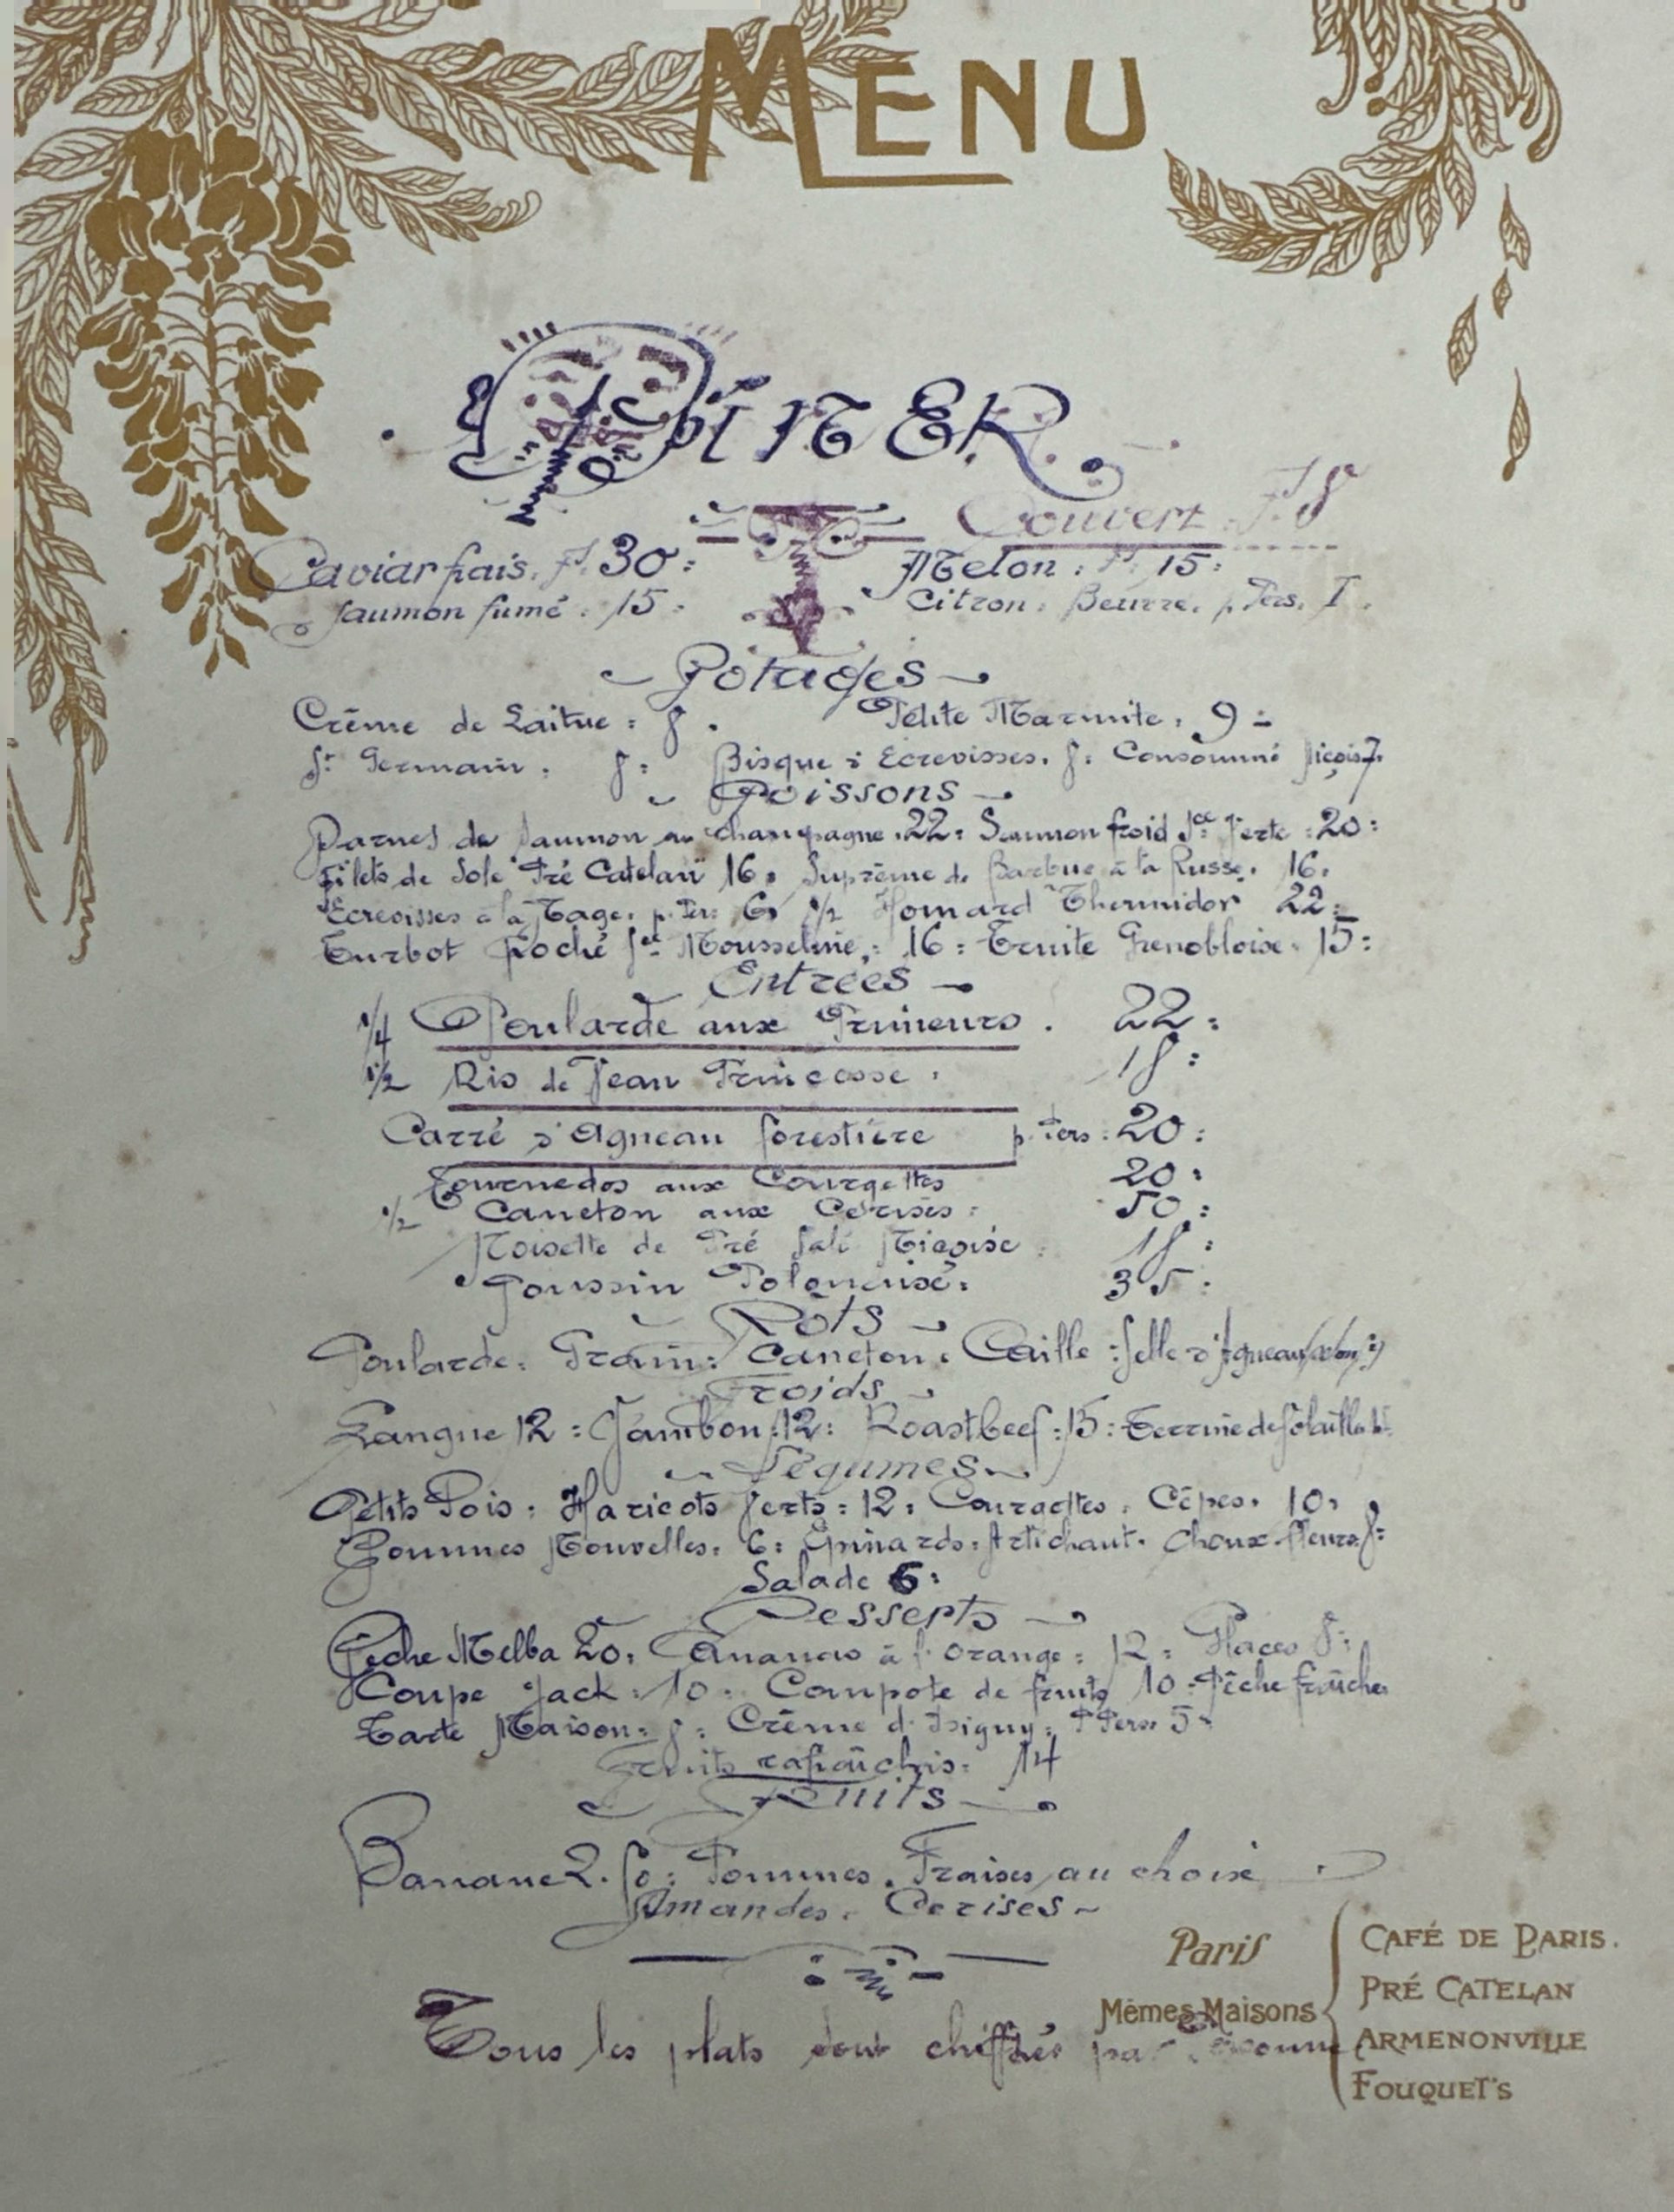 MENU
DÎNER
Couvert. F. 8
Caviar frais. F. 30:
Melon: F. 15:
Saumon fumé: 15:
Citron: Beurre. p. Pers. 1.
Potages
Crême de Laitue: 8. Petite Marmite. 9=
St Germain: 8: Bisque d'Ecrevisses. 8: Consommé Niçois 7.
Poissons
Darnes de Saumon au Champagne. 22: Saumon froid Sce Verte: 20:
Filets de Sole Pré Catelan 16. Suprême de Barbue à la Russe. 16.
Ecrevisses à la Nage. p. Pers 6. 1/2 Homard Thermidor 22:
Turbot Poché Sce Mousseline: 16: Truite Grenobloise. 15:
Entrées
1/4 Poularde aux Primeurs. 22:
1/2 Ris de Veau Princesse. 18:
Carré d'Agneau forestière p. Pers: 20:
Tournedos aux Courgettes 20:
1/2 Caneton aux Cerises: 50:
Noisette de Pré Salé Niçoise: 18:
Poussin Polonaise: 35:
Rôts
Poularde. Grain: Caneton. Caille: Selle d'Agneau
Froids
Langue 12: Jambon: 12: Roastbeef: 15: Terrine de Volaille
Légumes
Petits Pois: Haricots Verts: 12: Courgettes. Cèpes. 10.
Pommes Nouvelles. 6: Epinards: Artichaut. Choux-fleurs. 8:
Salade 6:
Desserts
Pêche Melba 20. Ananas à l'orange: 12: Glaces 8:
Coupe Jack: 10: Compote de fruits 10: Pêche fraîche.
Tarte Maison: 8: Crême d'Isigny: P Pers. 5
Fruits rafraîchis: 14
Fruits
Banane 2.50: Pommes. Fraises au choix
Amandes. Cerises
Tous les plats sont chiffrés par Personne
Paris
Mêmes Maisons
CAFÉ DE PARIS.
PRÉ CATELAN
ARMENONVILLE
FOUQUET'S